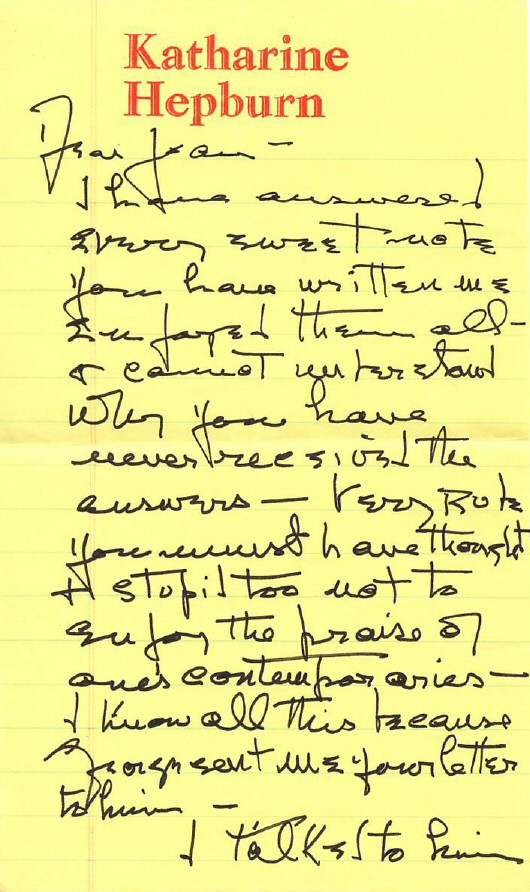 Katharine
Hepburn
Dear Joan —
I have answered
every sweet note
you have written me
Enjoyed them all —
& cannot understand
why you have
never received the
answers — Very Rude
you must have thought
& stupid too not to
enjoy the praise of
one's contemporaries —
I know all this because
sent me your letter
to him —
I talked to him